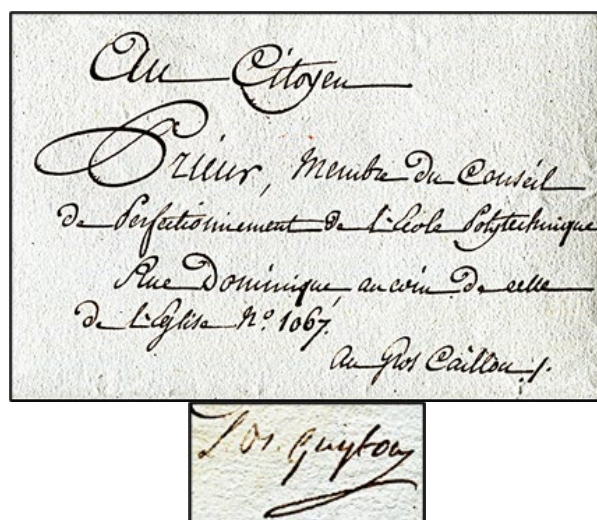 Au Citoyen
Prieur, Membre du Conseil
de Perfectionnement de l'École Polytechnique
Rue Dominique, au coin de celle
de l'Eglise N.° 1067.
au Gros Caillou /.
Guyton